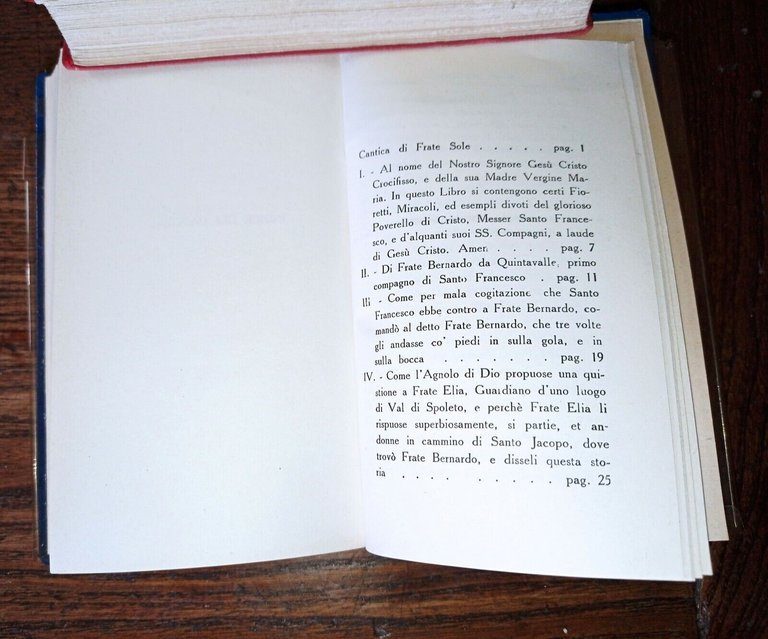 Cantica di Frate Sole . . . . . pag. 1
I. - Al nome del Nostro Signore Gesù Cristo
Crocifisso, e della sua Madre Vergine Ma-
ria. In questo Libro si contengono certi Fio-
retti, Miracoli, ed esempli divoti del glorioso
Poverello di Cristo, Messer Santo France-
sco, e d'alquanti suoi SS. Compagni, a laude
di Gesù Cristo. Amen . . . . pag. 7
II. - Di Frate Bernardo da Quintavalle, primo
compagno di Santo Francesco . pag. 11
III - Come per mala cogitazione che Santo
Francesco ebbe contro a Frate Bernardo, co-
mandò al detto Frate Bernardo, che tre volte
gli andasse co' piedi in sulla gola, e in
sulla bocca . . . . . . . pag. 19
IV. - Come l'Agnolo di Dio propuose una qui-
stione a Frate Elia, Guardiano d'uno luogo
di Val di Spoleto, e perchè Frate Elia li
rispuose superbiosamente, si partie, et an-
donne in cammino di Santo Jacopo, dove
trovò Frate Bernardo, e disseli questa sto-
ria . . . . . . . . . pag. 25